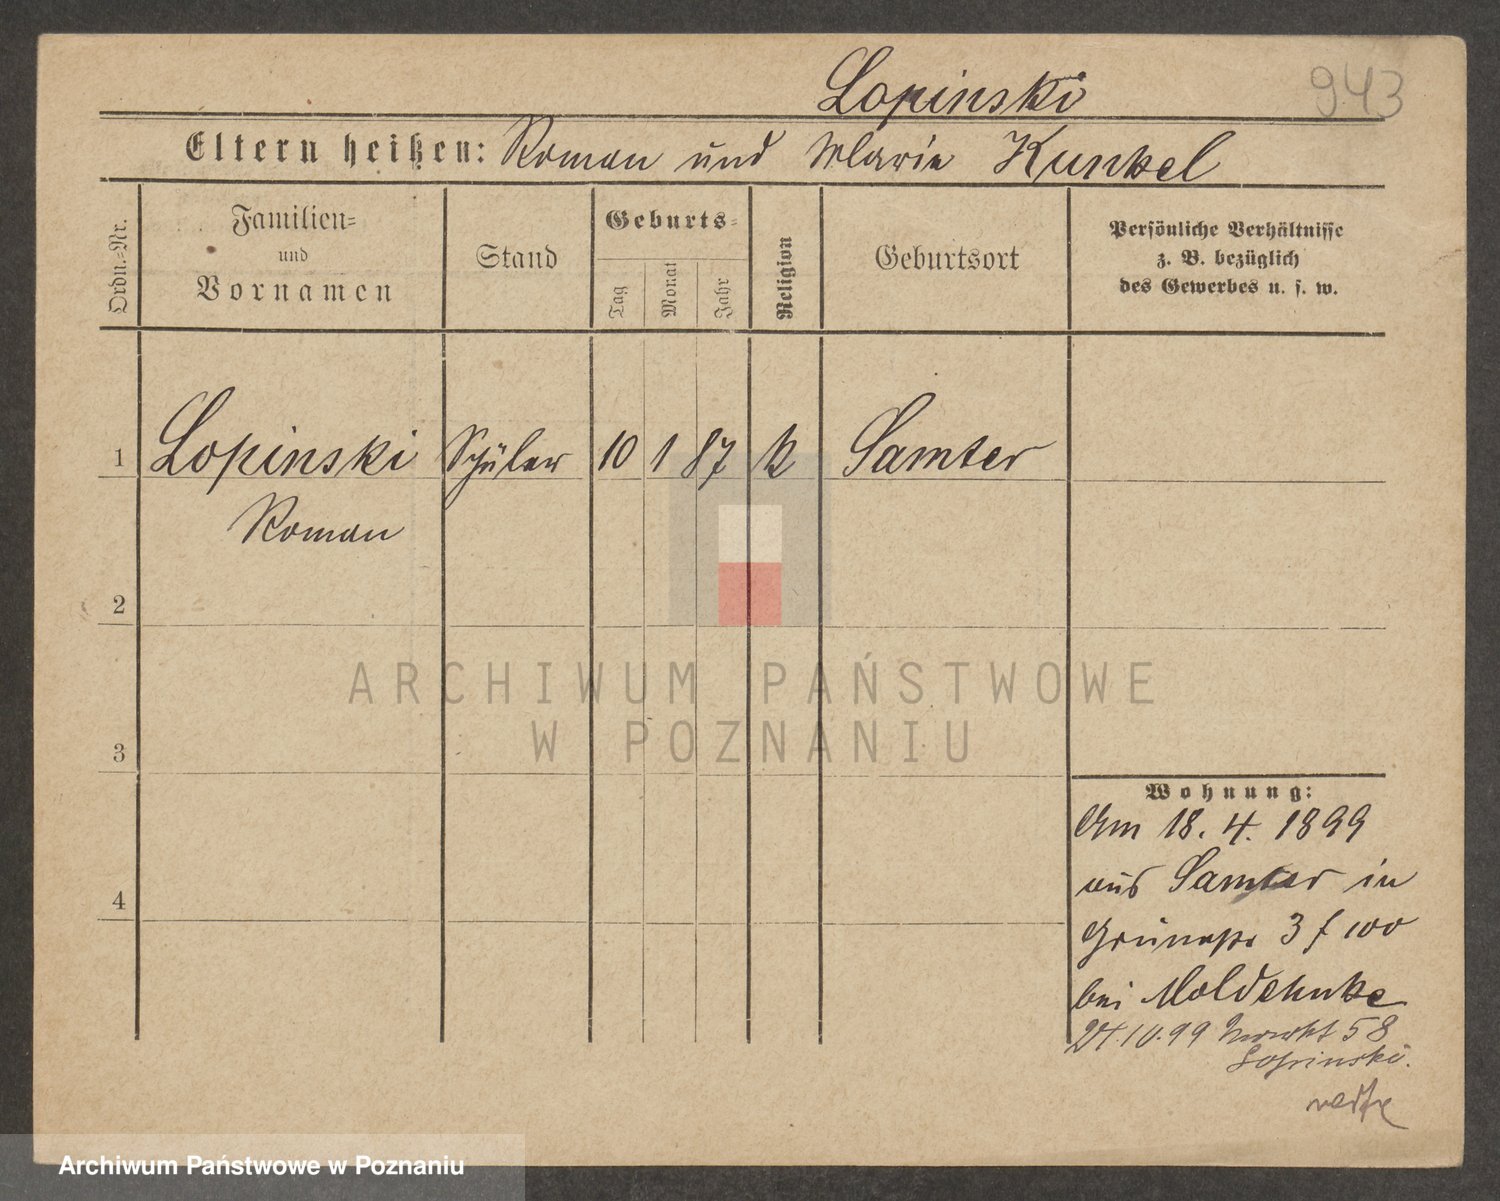 Lopinski
943
Eltern heißen: Roman und Marie Kunkel
Ordn.-Nr.
Familien-
und
Vornamen
Stand
Geburts-
Tag
Monat
Jahr
Religion
Geburtsort
Persönliche Verhältnisse
z. B. bezüglich
des Gewerbes u. s. w.
1 Lopinski Schüler 10 1 87 k Samter
Roman
2
3
4
ARCHIWUM PAŃSTWOWE
W POZNANIU
Wohnung:
Am 18. 4. 1899
aus Samter in
Grünestr 3 f 100
bei Moldehnke
24.10.99 Markt 58
Lopinski.
Archiwum Państwowe w Poznaniu